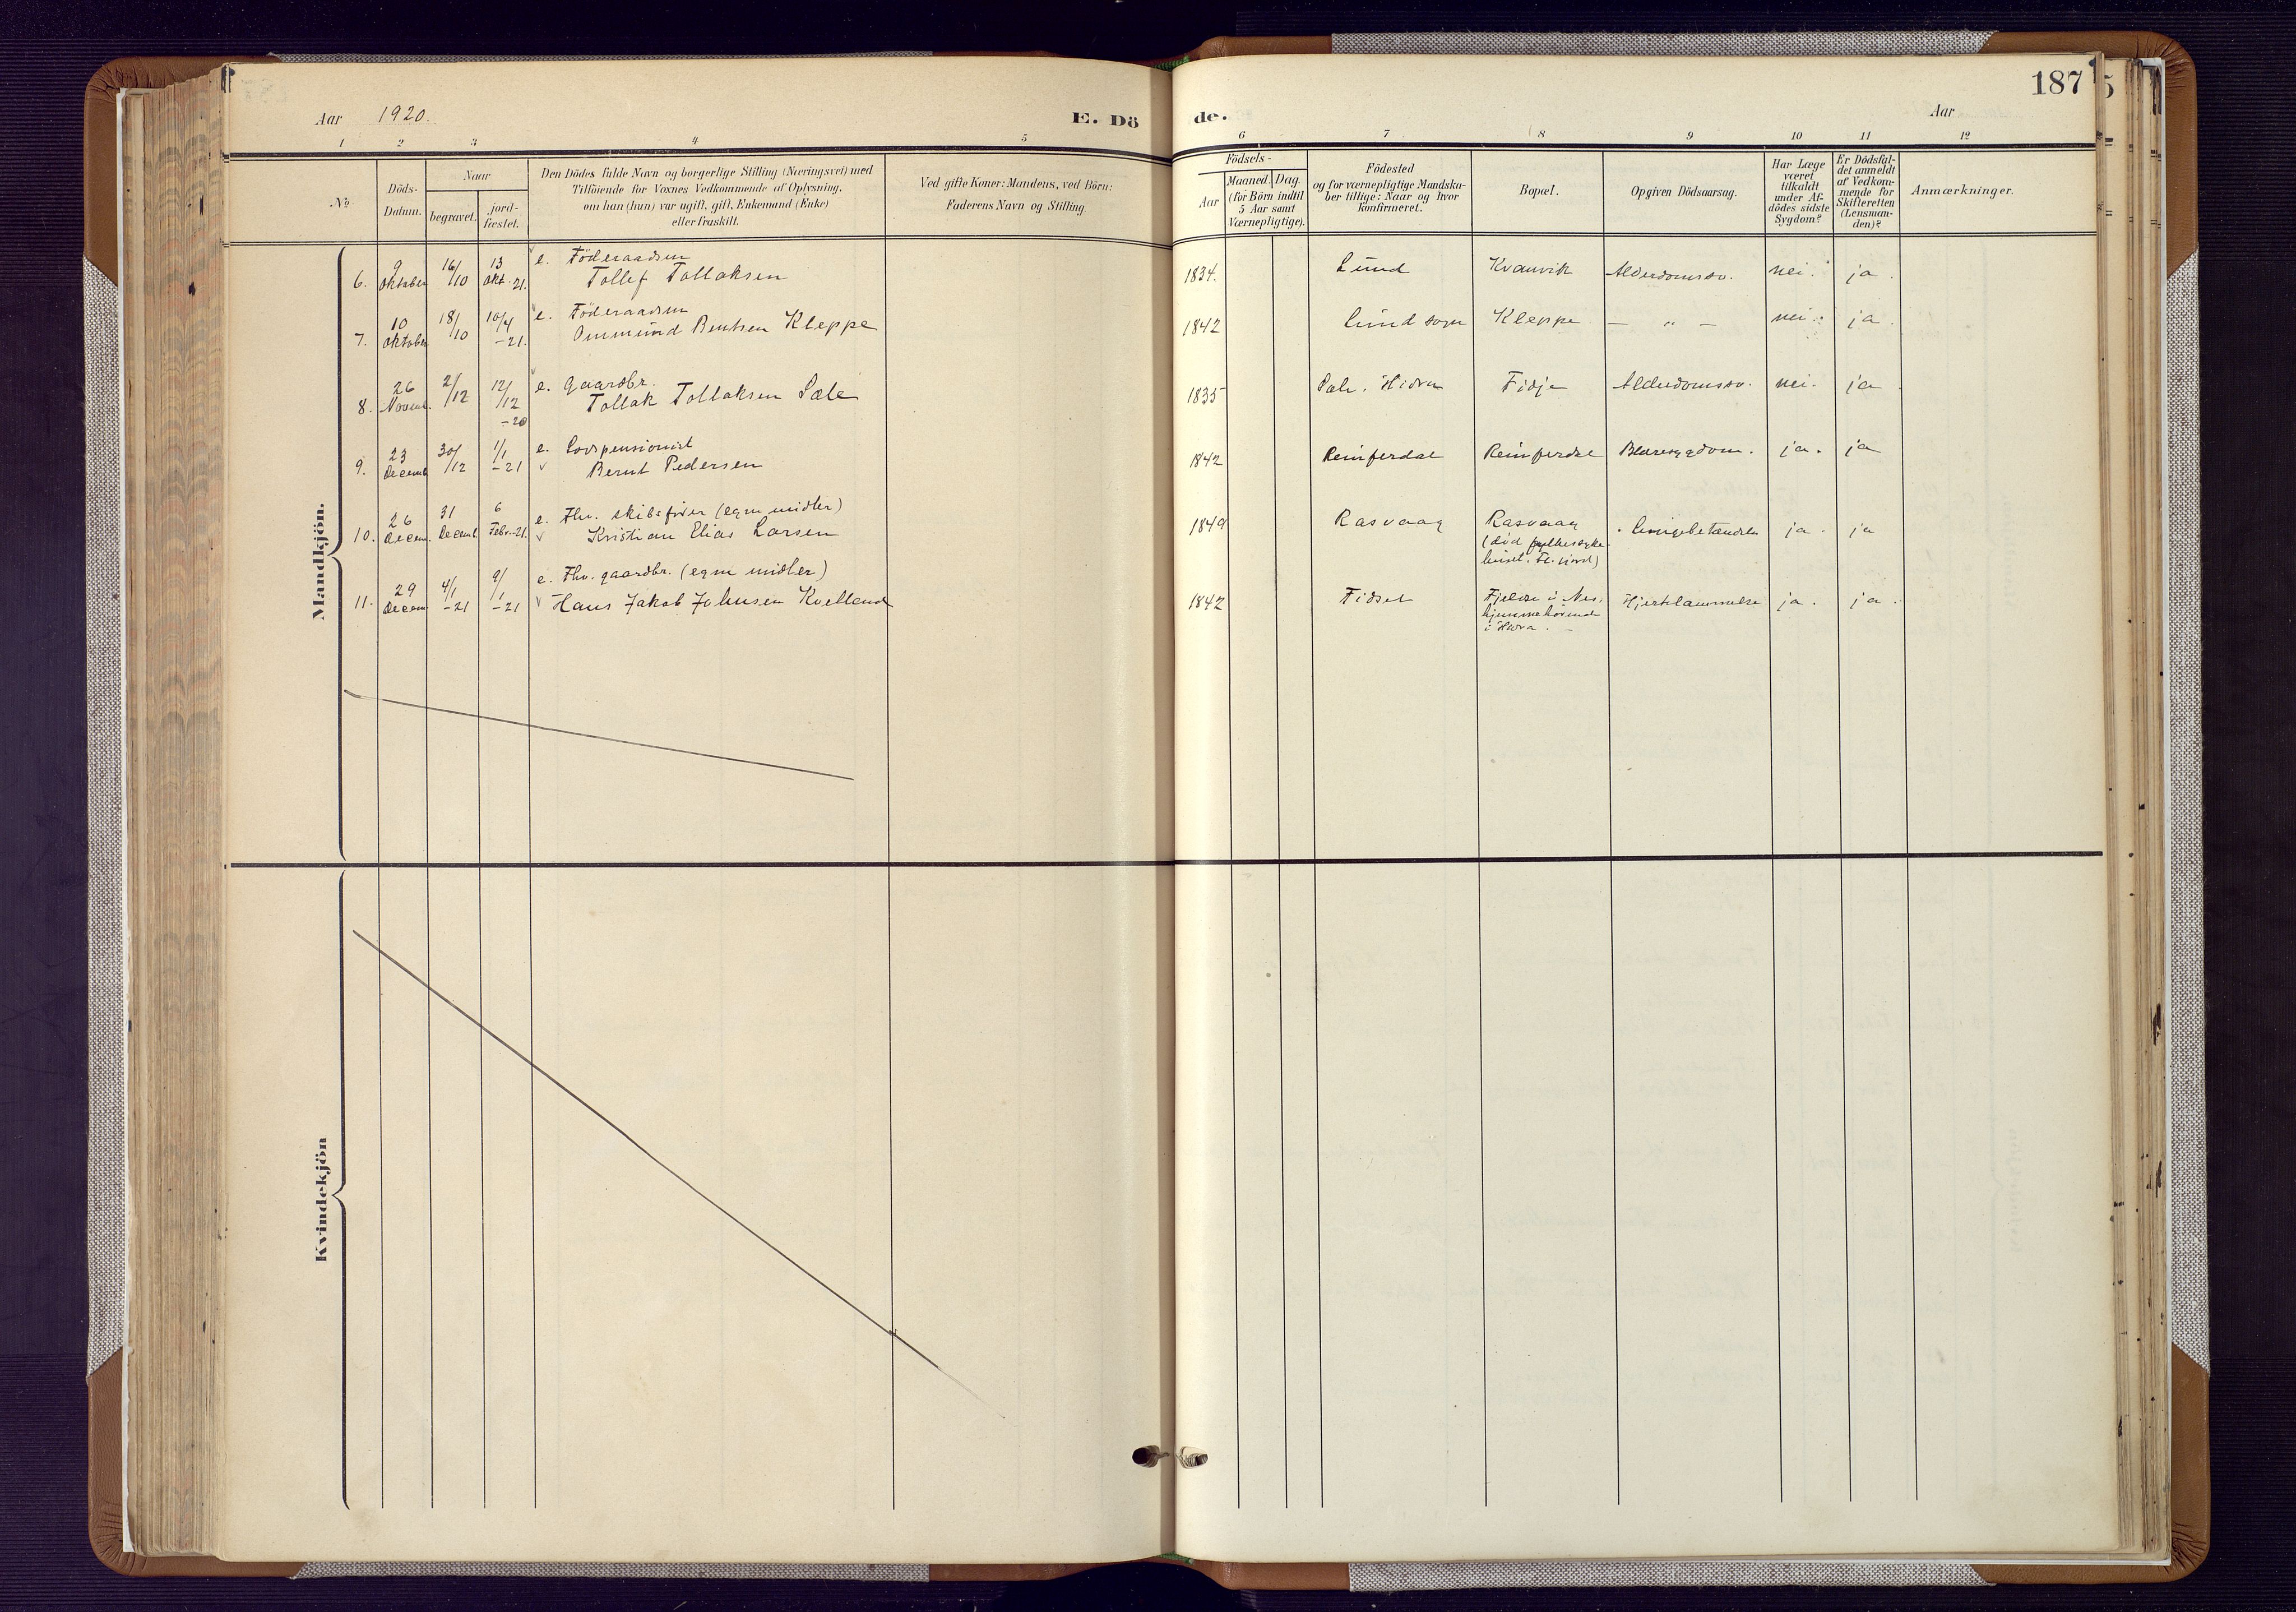 187
Aar 1920. E. Dö de. Aar
1 2 3 4 5 6 7 8 9 10 11 12
№
Döds-
Datum.
Naar
begravet.
jord-
fæstet.
Den Dödes fulde Navn og borgerlige Stilling (Næringsvei) med
Tilföiende for Voxnes Vedkommende af Oplysning,
om han (hun) var ugift, gift, Enkemand (Enke)
eller fraskilt.
Ved gifte Koner: Mandens, ved Börn:
Faderens Navn og Stilling.
Födsels-
Aar
Maaned. Dag.
(for Börn indtil
5 Aar samt
Værnepligtige).
Födested
og for værnepligtige Mandska-
ber tillige: Naar og hvor
konfirmeret.
Bopæl.
Opgiven Dödsaarsag.
Har Læge
været
tilkaldt
under Af-
dödes sidste
Sygdom?
Er Dödsfal-
det anmeldt
af Vedkom-
mende for
Skifteretten
(Lensman-
den)?
Anmærkninger.
Mandkjön.
6. 9 Oktober 16/10 13 Okt. 21. e. Föderaadsm
Tollef Tollaksen 1834. Lund Kvanvik Alderdomssv. nei. ja.
7. 10 Oktober 18/10 10/4 -21. e. Föderaadsm
Ommund Berntsen Kleppe 1842 Lund sogn Kleppe — " — nei. ja.
8. 26 Novemb. 2/12 12/12 -20 e. gaardbr.
Tollak Tollaksen Sæle 1835 Sæle. Hidra Fidje Alderdomssv. nei. ja
9. 23 Decemb 30/12 1/1 -21 e. Lospensionist
Bernt Pedersen 1842 Reinferdal Reinferdal Blæresygdom. ja. ja
10. 26 Decem. 31 Decemb 6 Febr.-21. e. Fhv. skibsfører (egne midler)
Kristian Elias Larsen 1849 Rasvaag Rasvaag
(død fylkessyke-
huset. Fl. fjord) Lungebetændelse ja. ja
11. 29 Decem 4/1 -21 9/1 -21 e. Fhv. gaardbr. (egne midler)
Hans Jakob Johnsen Kvelland 1842 Fidsel Fjelse i Nes,
hjemmehörende
i Hidra. Hjertelammelse ja. ja.
Kvindekjön